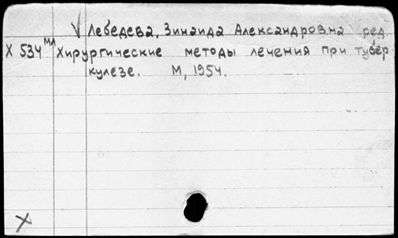 V Лебедева, Зинаида Александровна ред
X 534 мл Хирургические методы лечения при тубер
кулезе. М, 1954.
X